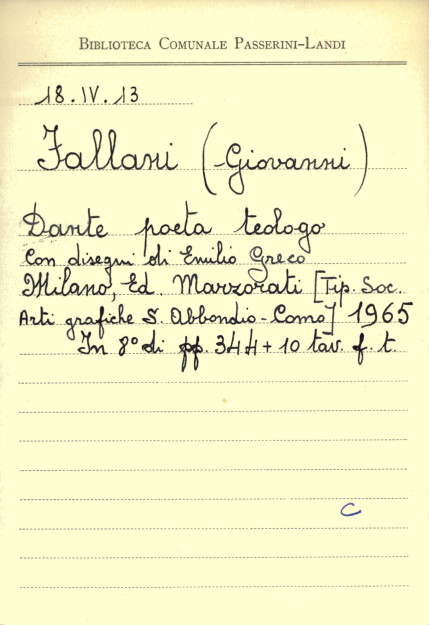 BIBLIOTECA COMUNALE PASSERINI-LANDI
18.IV.13
Fallani (Giovanni)
Dante poeta teologo
Con disegni di Emilio Greco
Milano, Ed. Marzorati [Tip. Soc.
Arti grafiche S. Abbondio-Como] 1965
In 8° di pp. 344 + 10 tav. f. t.
C